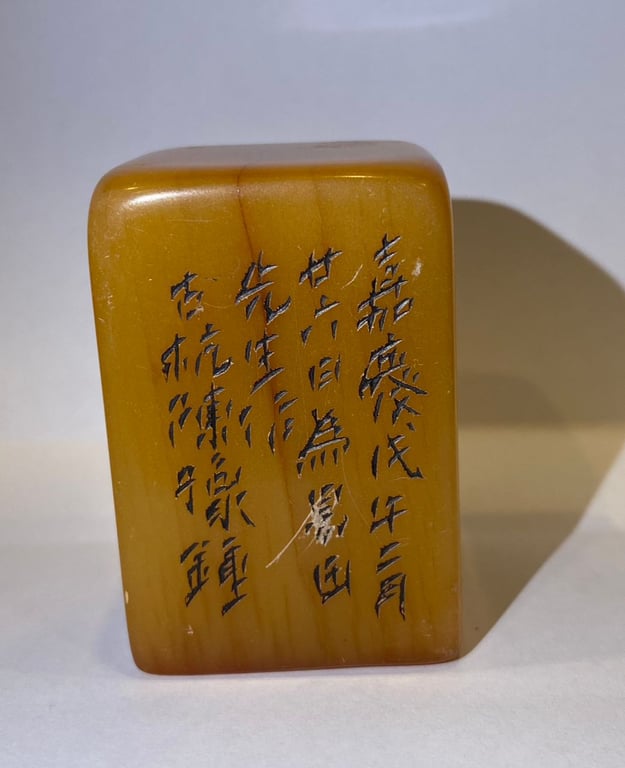 嘉慶戊午二月
廿六日為鳳田
先生作
古杭陳豫鍾